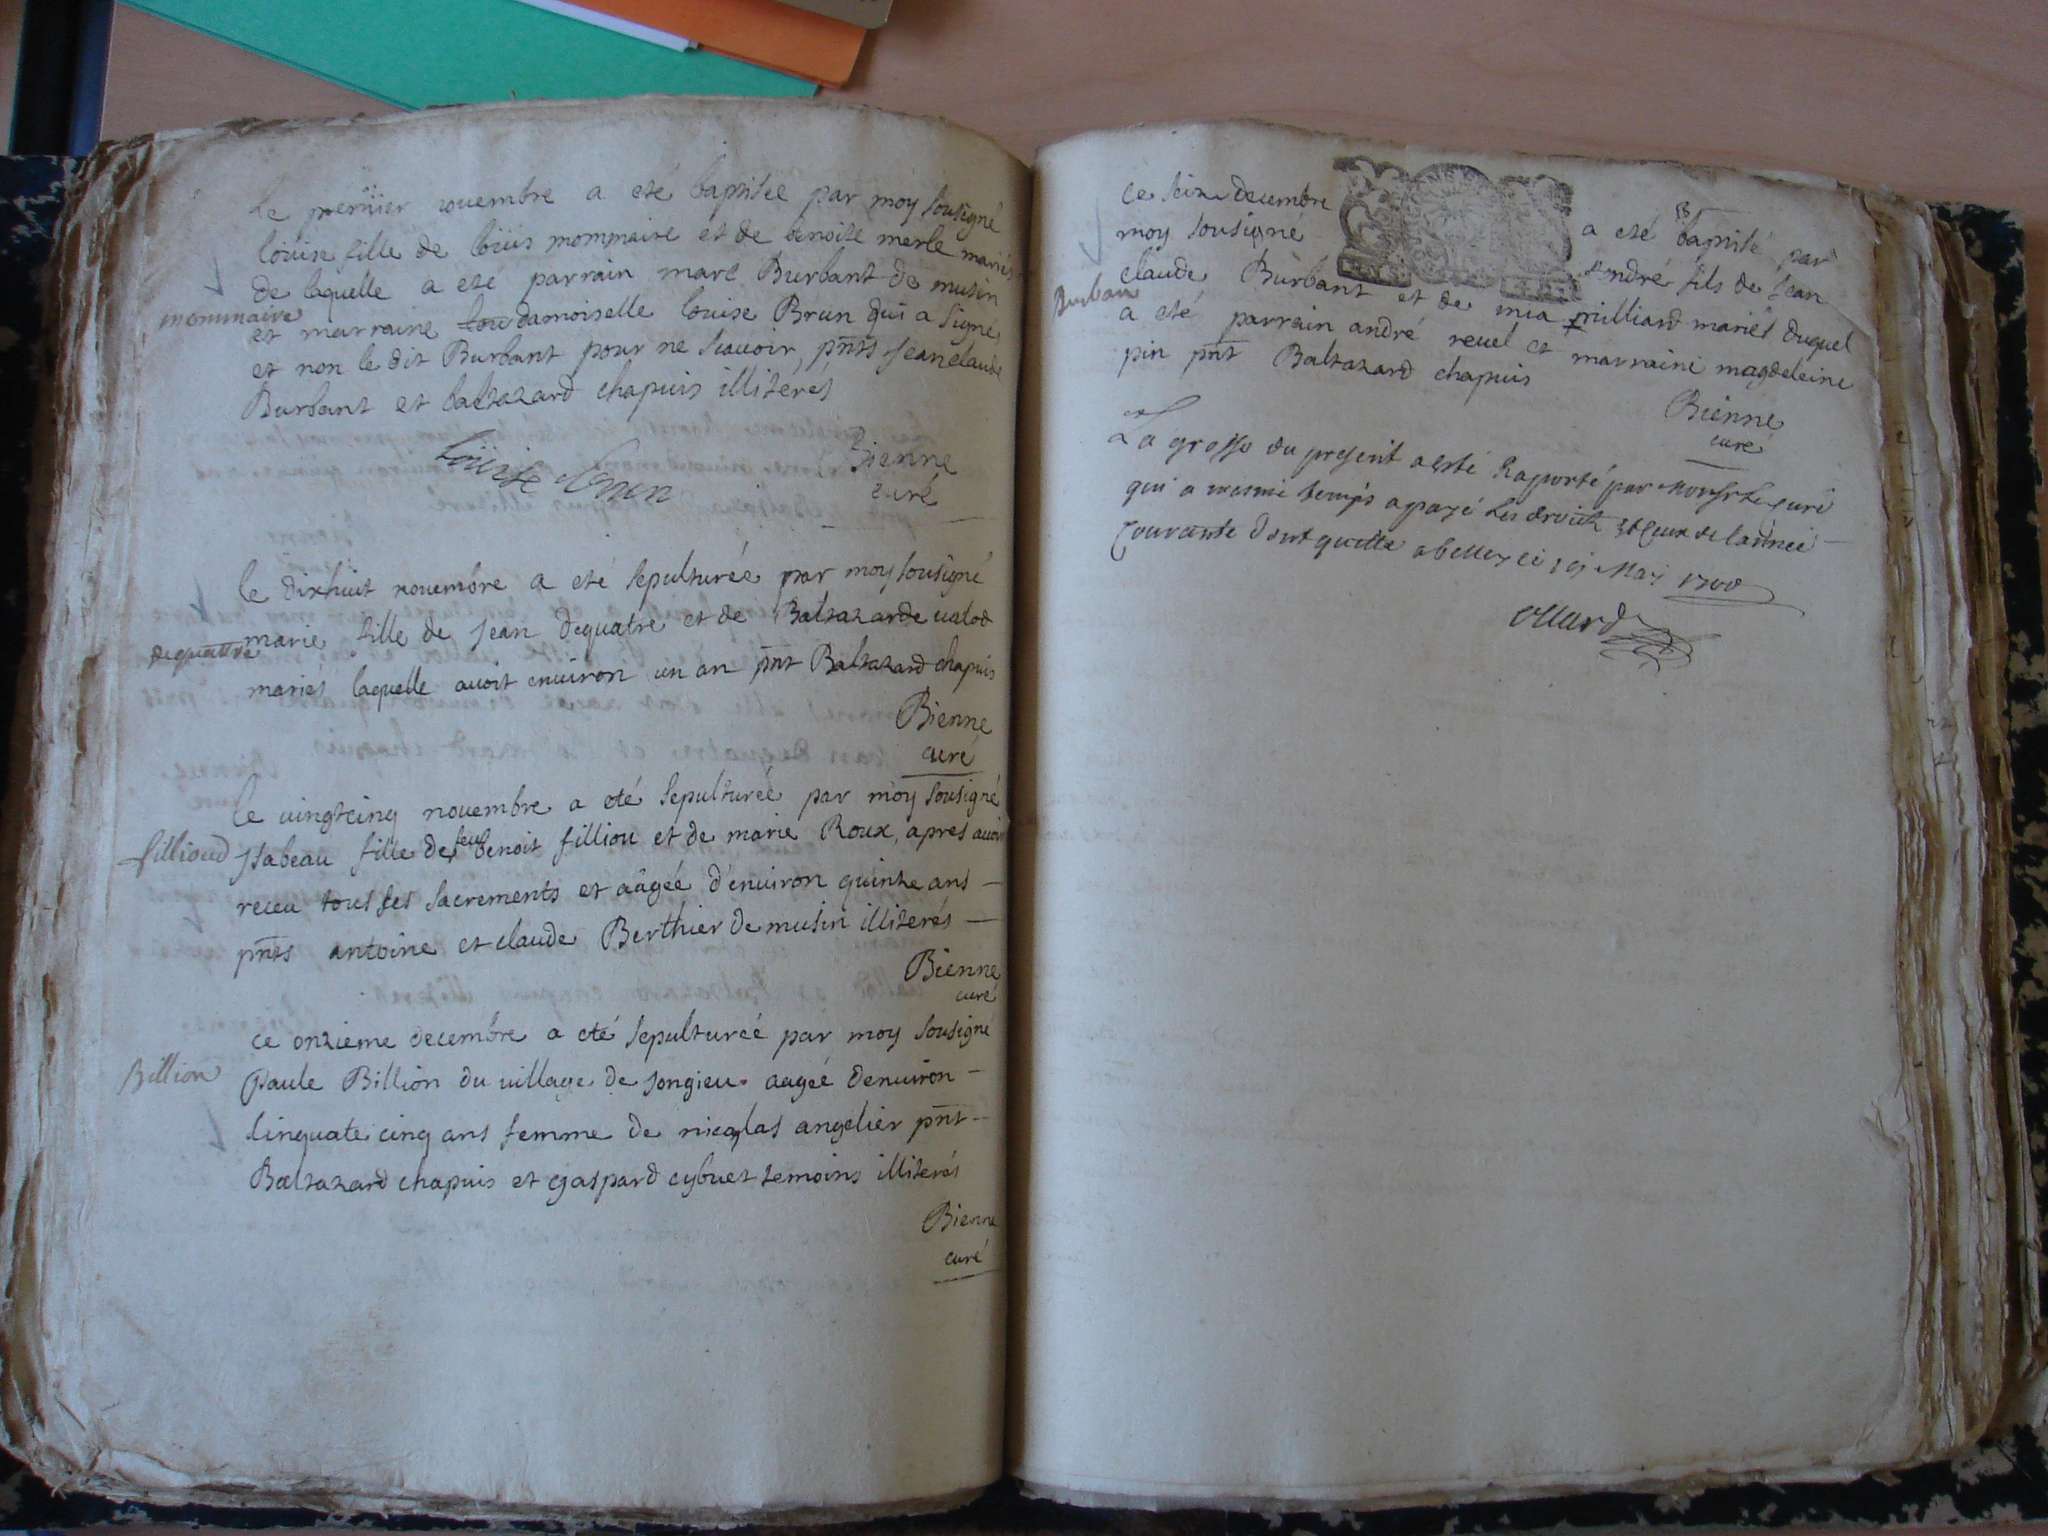 Le premiier novembre a eté baptisée par moy sousigné
louise fille de loüis mommaire et de benoite merle mariés
de laquelle a eté parrain marc Burbant de musin
mommaire
et marraine lou damoiselle louise Brun qui a signé
et non le dit Burbant pour ne scavoir, pñts jean claude
Burbant et baltazard chapuis illiterés
Loüise Brun
Bienne
curé
le dixhuit novembre a eté sepulturée par moy sousigné
dequattre
marie fille de jean dequatre et de Baltazarde valod
mariés laquelle avoit environ un an pñt Baltazard chapuis
Bienne
curé
le vingtcinq novembre a eté sepulturée par moy sousigné
fillioud
ysabeau fille de feu benoit filliou et de marie Roux, apres avoir
receu tous ses sacrements et aâgée d'environ quinze ans
pñts antoine et claude Berthier de musin illiterés
Bienne
curé
ce onzieme decembre a eté sepulturée par moy sousigné
Billion
paule Billion du village de songieu aagée denviron
sinquate cinq ans femme de nicolas angelier pñt
Baltazard chapuis et gaspard cybuet temoins illiterés
Bienne
curé
ce seize decembre a eté baptisé par
moy sousigné andré fils de jean
Burban
claude Burbant et de mia milliard mariés duquel
a eté parrain andré revel et marraine magdeleine
pin pñt Baltazard chapuis
Bienne
curé
La grosse du present a esté Raporté par Monsr le curé
qui a mesme temps a payé les droits et ceux de l'année
Courante dont quitte a belley ce May 1700